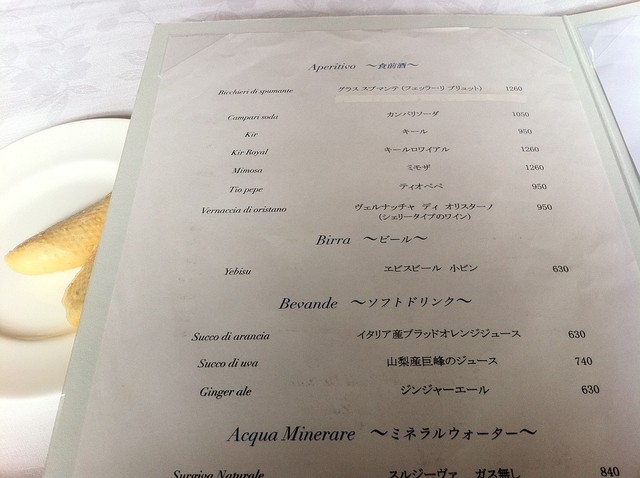 Aperitivo ～食前酒～
Bicchieri di spumante グラス スプマンテ (フェッラーリ ブリュット) 1260
Campari soda カンパリソーダ 1050
Kir キール 950
Kir Royal キールロワイアル 1260
Mimosa ミモザ 1260
Tio pepe ティオペペ 950
Vernaccia di oristano ヴェルナッチャ ディ オリスターノ 950
(シェリータイプのワイン)
Birra ～ビール～
Yebisu ヱビスビール 小ビン 630
Bevande ～ソフトドリンク～
Succo di arancia イタリア産ブラッドオレンジジュース 630
Succo di uva 山梨産巨峰のジュース 740
Ginger ale ジンジャーエール 630
Acqua Minerare ～ミネラルウォーター～
Surgiva Naturale スルジーヴァ ガス無し 840